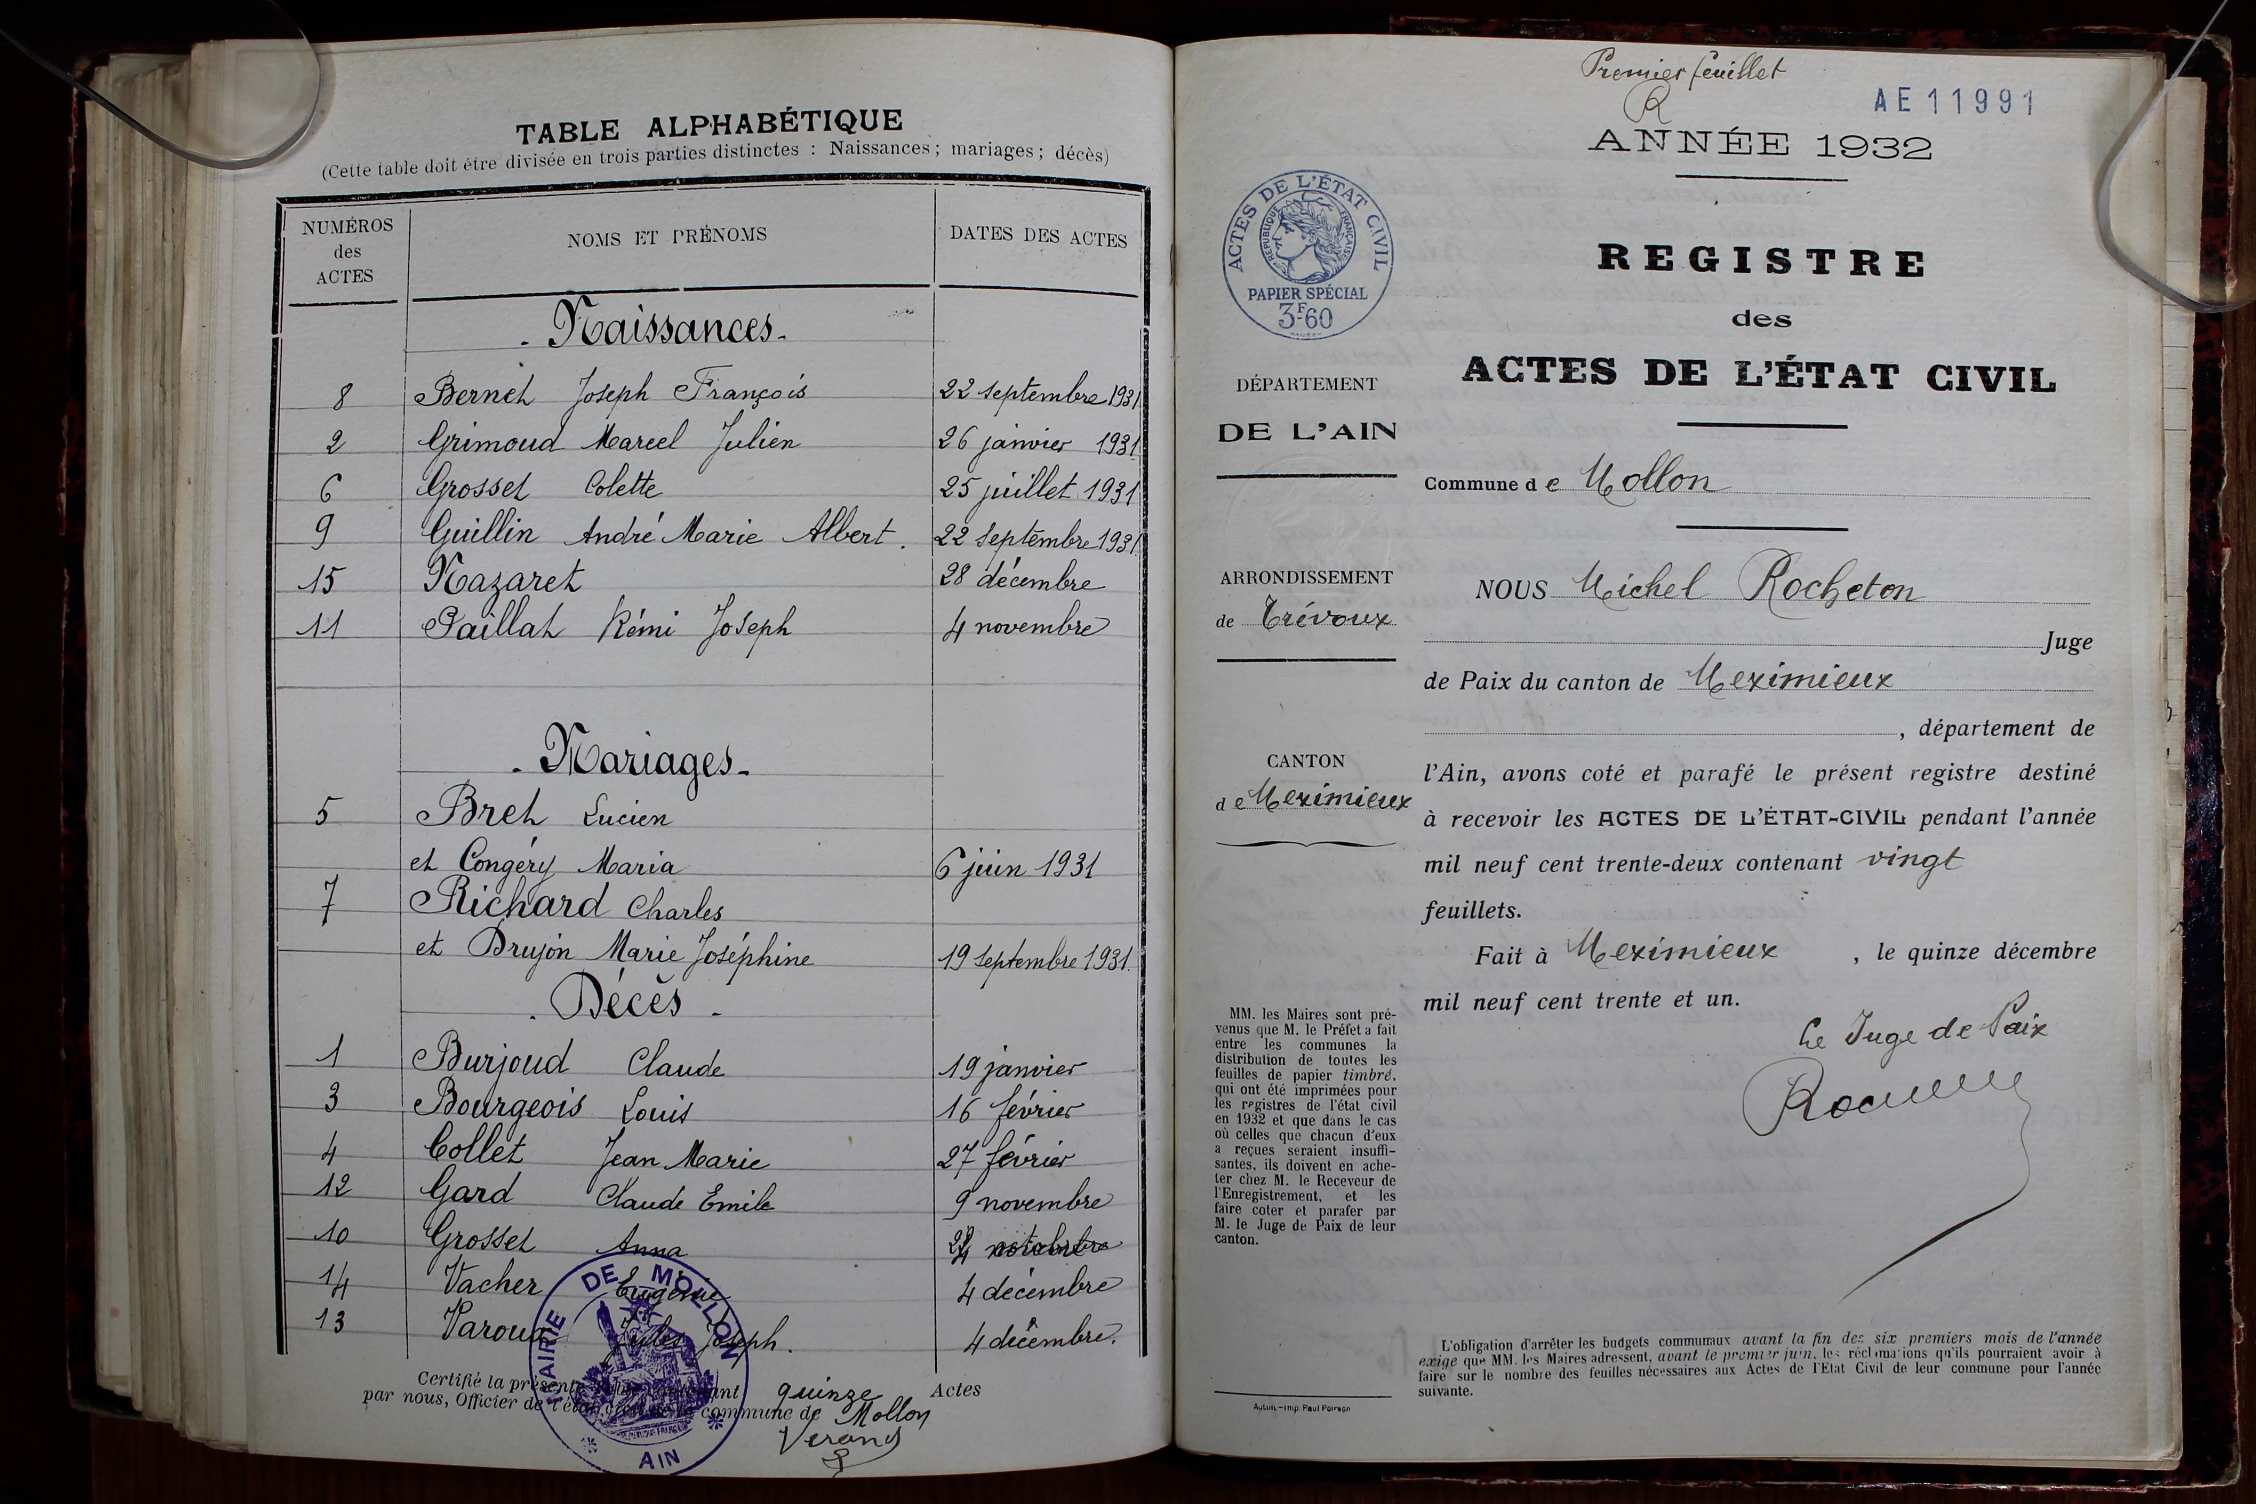 TABLE ALPHABÉTIQUE
(Cette table doit être divisée en trois parties distinctes : Naissances ; mariages ; décès)
NUMÉROS des ACTES NOMS ET PRÉNOMS DATES DES ACTES
- Naissances -
8 Bernet Joseph François 22 septembre 1931
2 Grimoud Marcel Julien 26 janvier 1931
6 Grosset Colette 25 juillet 1931
9 Guillin André Marie Albert. 22 septembre 1931
15 Nazaret 28 décembre
11 Paillat Rémi Joseph 4 novembre
- Mariages -
5 Bret Lucien
et Congéry Maria 6 juin 1931
7 Richard Charles
et Drujon Marie Joséphine 19 septembre 1931.
- Décès -
1 Burjoud Claude 19 janvier
3 Bourgeois Louis 16 février
4 Collet Jean Marie 27 février
12 Gard Claude Emile 9 novembre
10 Grosset Anna
14 Vacher Eugénie 4 décembre
13 Varoux Jules Joseph. 4 décembre.
Certifié la présente quinze Actes
par nous, Officier de l'état civil de la commune de Mollon
Verand
MAIRIE DE MOLLON
AIN
Premier feuillet
R
AE11991
ANNÉE 1932
ACTES DE L'ÉTAT CIVIL
RÉPUBLIQUE FRANÇAISE
PAPIER SPÉCIAL
3F60
REGISTRE
des
ACTES DE L'ÉTAT CIVIL
DÉPARTEMENT
DE L'AIN
ARRONDISSEMENT
de Trévoux
CANTON
de Meximieux
MM. les Maires sont pré-
venus que M. le Préfet a fait
entre les communes la
distribution de toutes les
feuilles de papier timbré,
qui ont été imprimées pour
les registres de l'état civil
en 1932 et que dans le cas
où celles que chacun d'eux
a reçues seraient insuffi-
santes, ils doivent en ache-
ter chez M. le Receveur de
l'Enregistrement, et les
faire coter et parafer par
M. le Juge de Paix de leur
canton.
Commune de Mollon
NOUS Michel Rocheton
Juge
de Paix du canton de Meximieux
, département de
l'Ain, avons coté et parafé le présent registre destiné
à recevoir les ACTES DE L'ÉTAT-CIVIL pendant l'année
mil neuf cent trente-deux contenant vingt
feuillets.
Fait à Meximieux, le quinze décembre
mil neuf cent trente et un.
Le Juge de Paix
L'obligation d'arrêter les budgets communaux avant la fin des six premiers mois de l'année
exige que MM. les Maires adressent, avant le premier juin, les réclamations qu'ils pourraient avoir à
faire sur le nombre des feuilles nécessaires aux Actes de l'Etat Civil de leur commune pour l'année
suivante.
Autun.—Imp. Paul Poirson